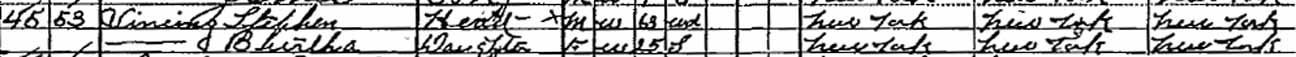 45 53 Vining Stephen Head - x M W 63 Wd New York New York New York
—— Bertha Daughter F W 25 S New York New York New York